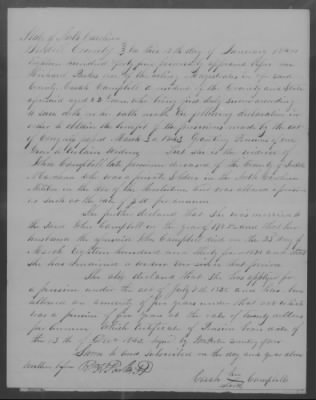 State of North Carolina
County } On this 13th day of January 1844
Eighteen hundred forty five personally appeared before me
Richard Parks one of the acting Magistrates in &c said
County Campbell a resident of the County and State
aforesaid aged 82 years, who being first duly sworn according
to law doth on her oath make the following declaration in
order to obtain the benefit of the provisions made by the act
of Congress passed March 3d 1843 Granting Pensions of one
Year to certain Widows That she is the widow of
John Campbell late pensioner deceased of the County of
who was a private Soldier in the North Carolina
Militia in the war of the Revolution and was allowed a pension
as such at the rate of per annum
She further declares that she was married to
the said John Campbell in the year 1782 and that her
husband the aforesaid John Campbell died on the 23 day of
March Eighteen hundred and thirty four 1834 and that
she has remained a widow ever since that period
She also declares that she has applied for
a pension under the act of July 7th 1838 and has been
allowed an annuity of five years under that act which
was a pension of five years at the rate of twenty dollars
per annum which certificate of Pension bears date of
the 13th of Decr 1842 signed by
Sworn to and subscribed on the day and year above
written before R. Parks JP
her
Campbell
mark